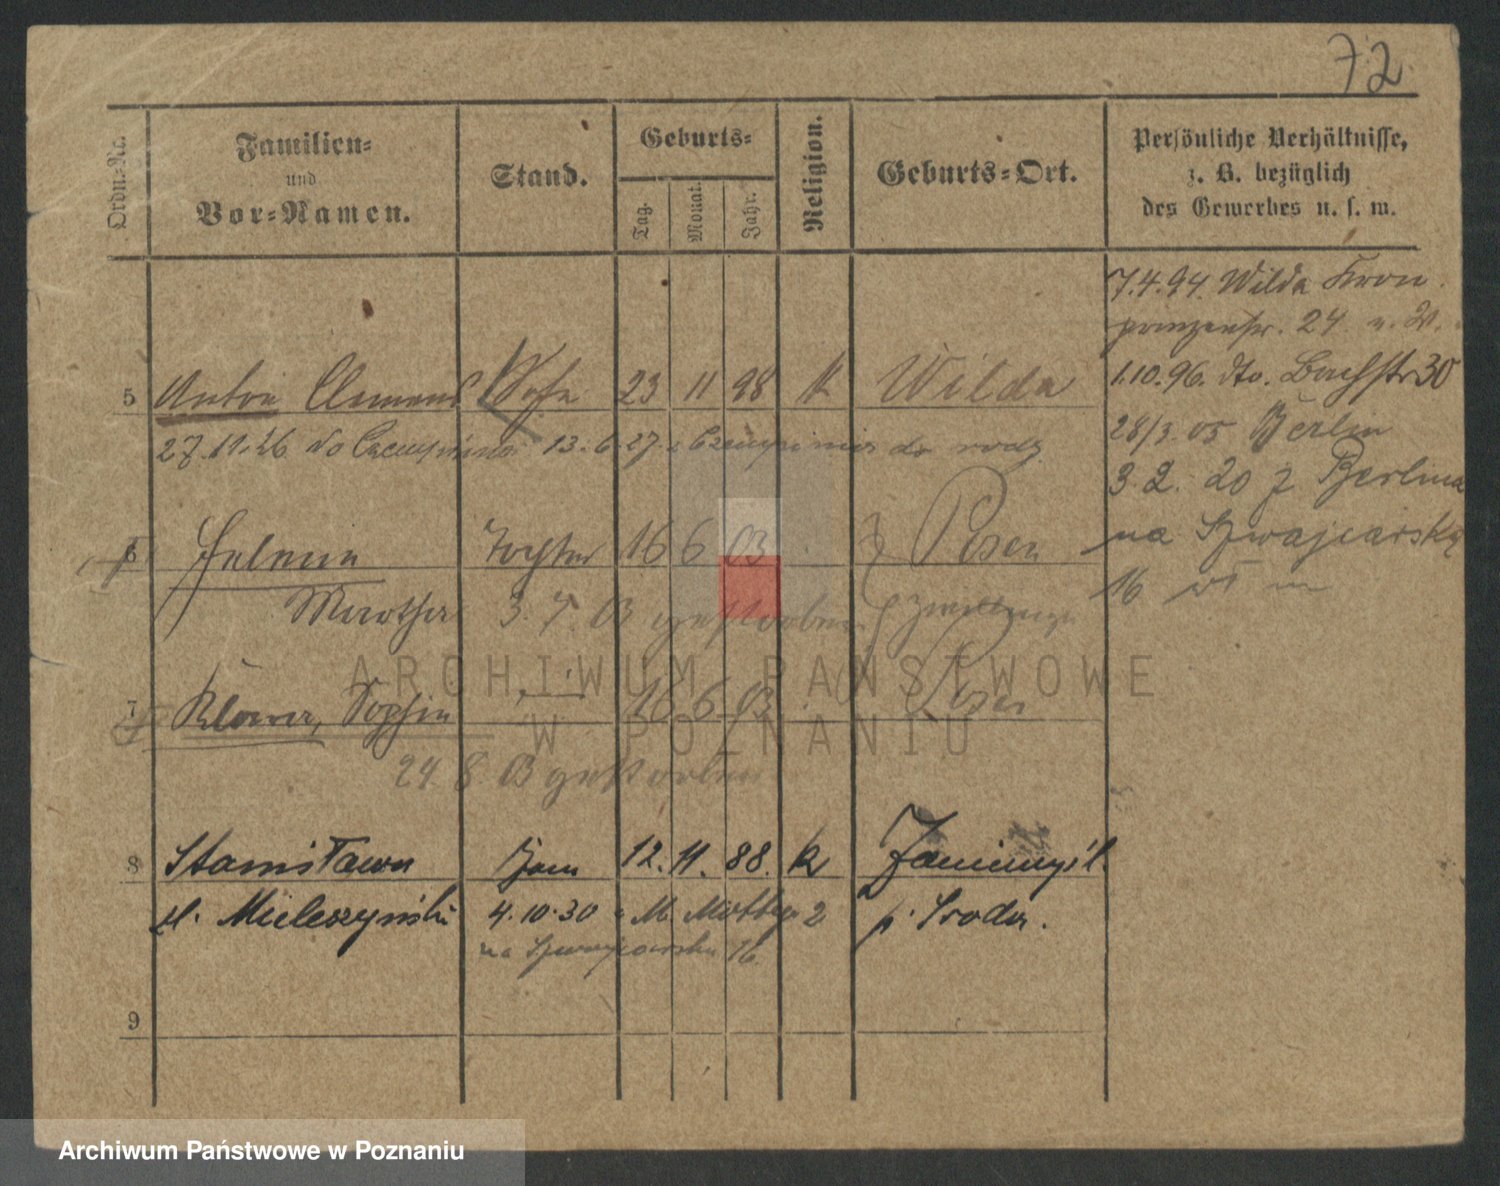 72
Ordn.-Nr.
Familien-
und
Vor-Namen.
Stand.
Geburts-
Tag.
Monat.
Jahr.
Religion.
Geburts-Ort.
Persönliche Verhältnisse,
z. B. bezüglich
des Gewerbes u. s. w.
7.4.94. Wilda Kron
prinzenstr. 24
1.10.96. dto. Bachstr 30
28/3.05 Berlin
3.2. 20 z Berlina
na Szwajcarską
16
5 Anton Clemens 23 11 98 k Wilda
27.11.26 do 13.6.27 do rodz.
6 Helene Tochter 16 6 03 Posen
Martha 3.7.03 gestorben
7 Klara, Sophia 16 6 03 Posen
24.8.03 gestorben
8 Stanisława żona 12. 11. 88. k Zaniemyśl
Mieleszyński 4.10.30 M. 2 p. Środa.
na Szwajcarską 16
9
ARCHIWUM PAŃSTWOWE
W POZNANIU
Archiwum Państwowe w Poznaniu